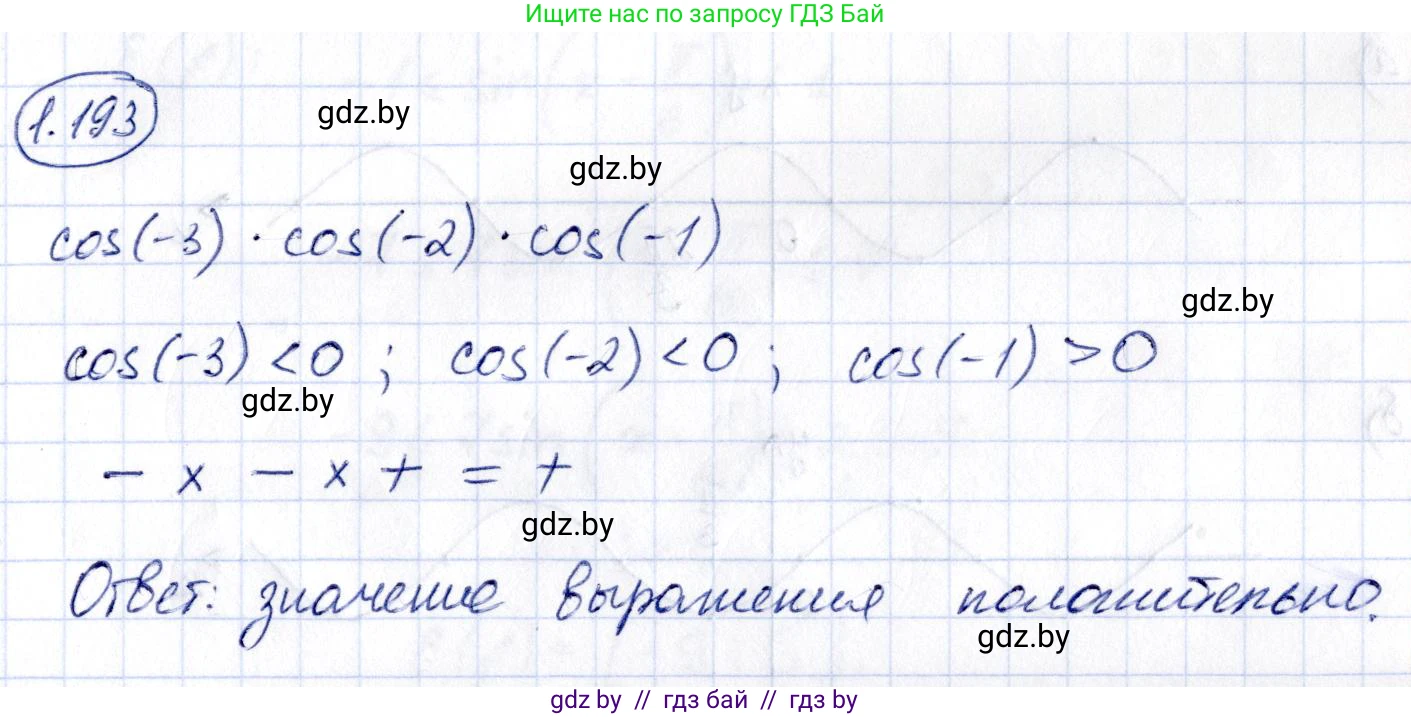 Ищите нас по запросу ГДЗ Бай
1.193
gdz.by
gdz.by
cos(-3) · cos(-2) · cos(-1)
gdz.by
cos(-3) < 0 ; cos(-2) < 0 ; cos(-1) > 0
gdz.by
- x - x + = +
gdz.by
Ответ: значение выражения положительно.
gdz.by
gdz.by // гдз бай // гдз by